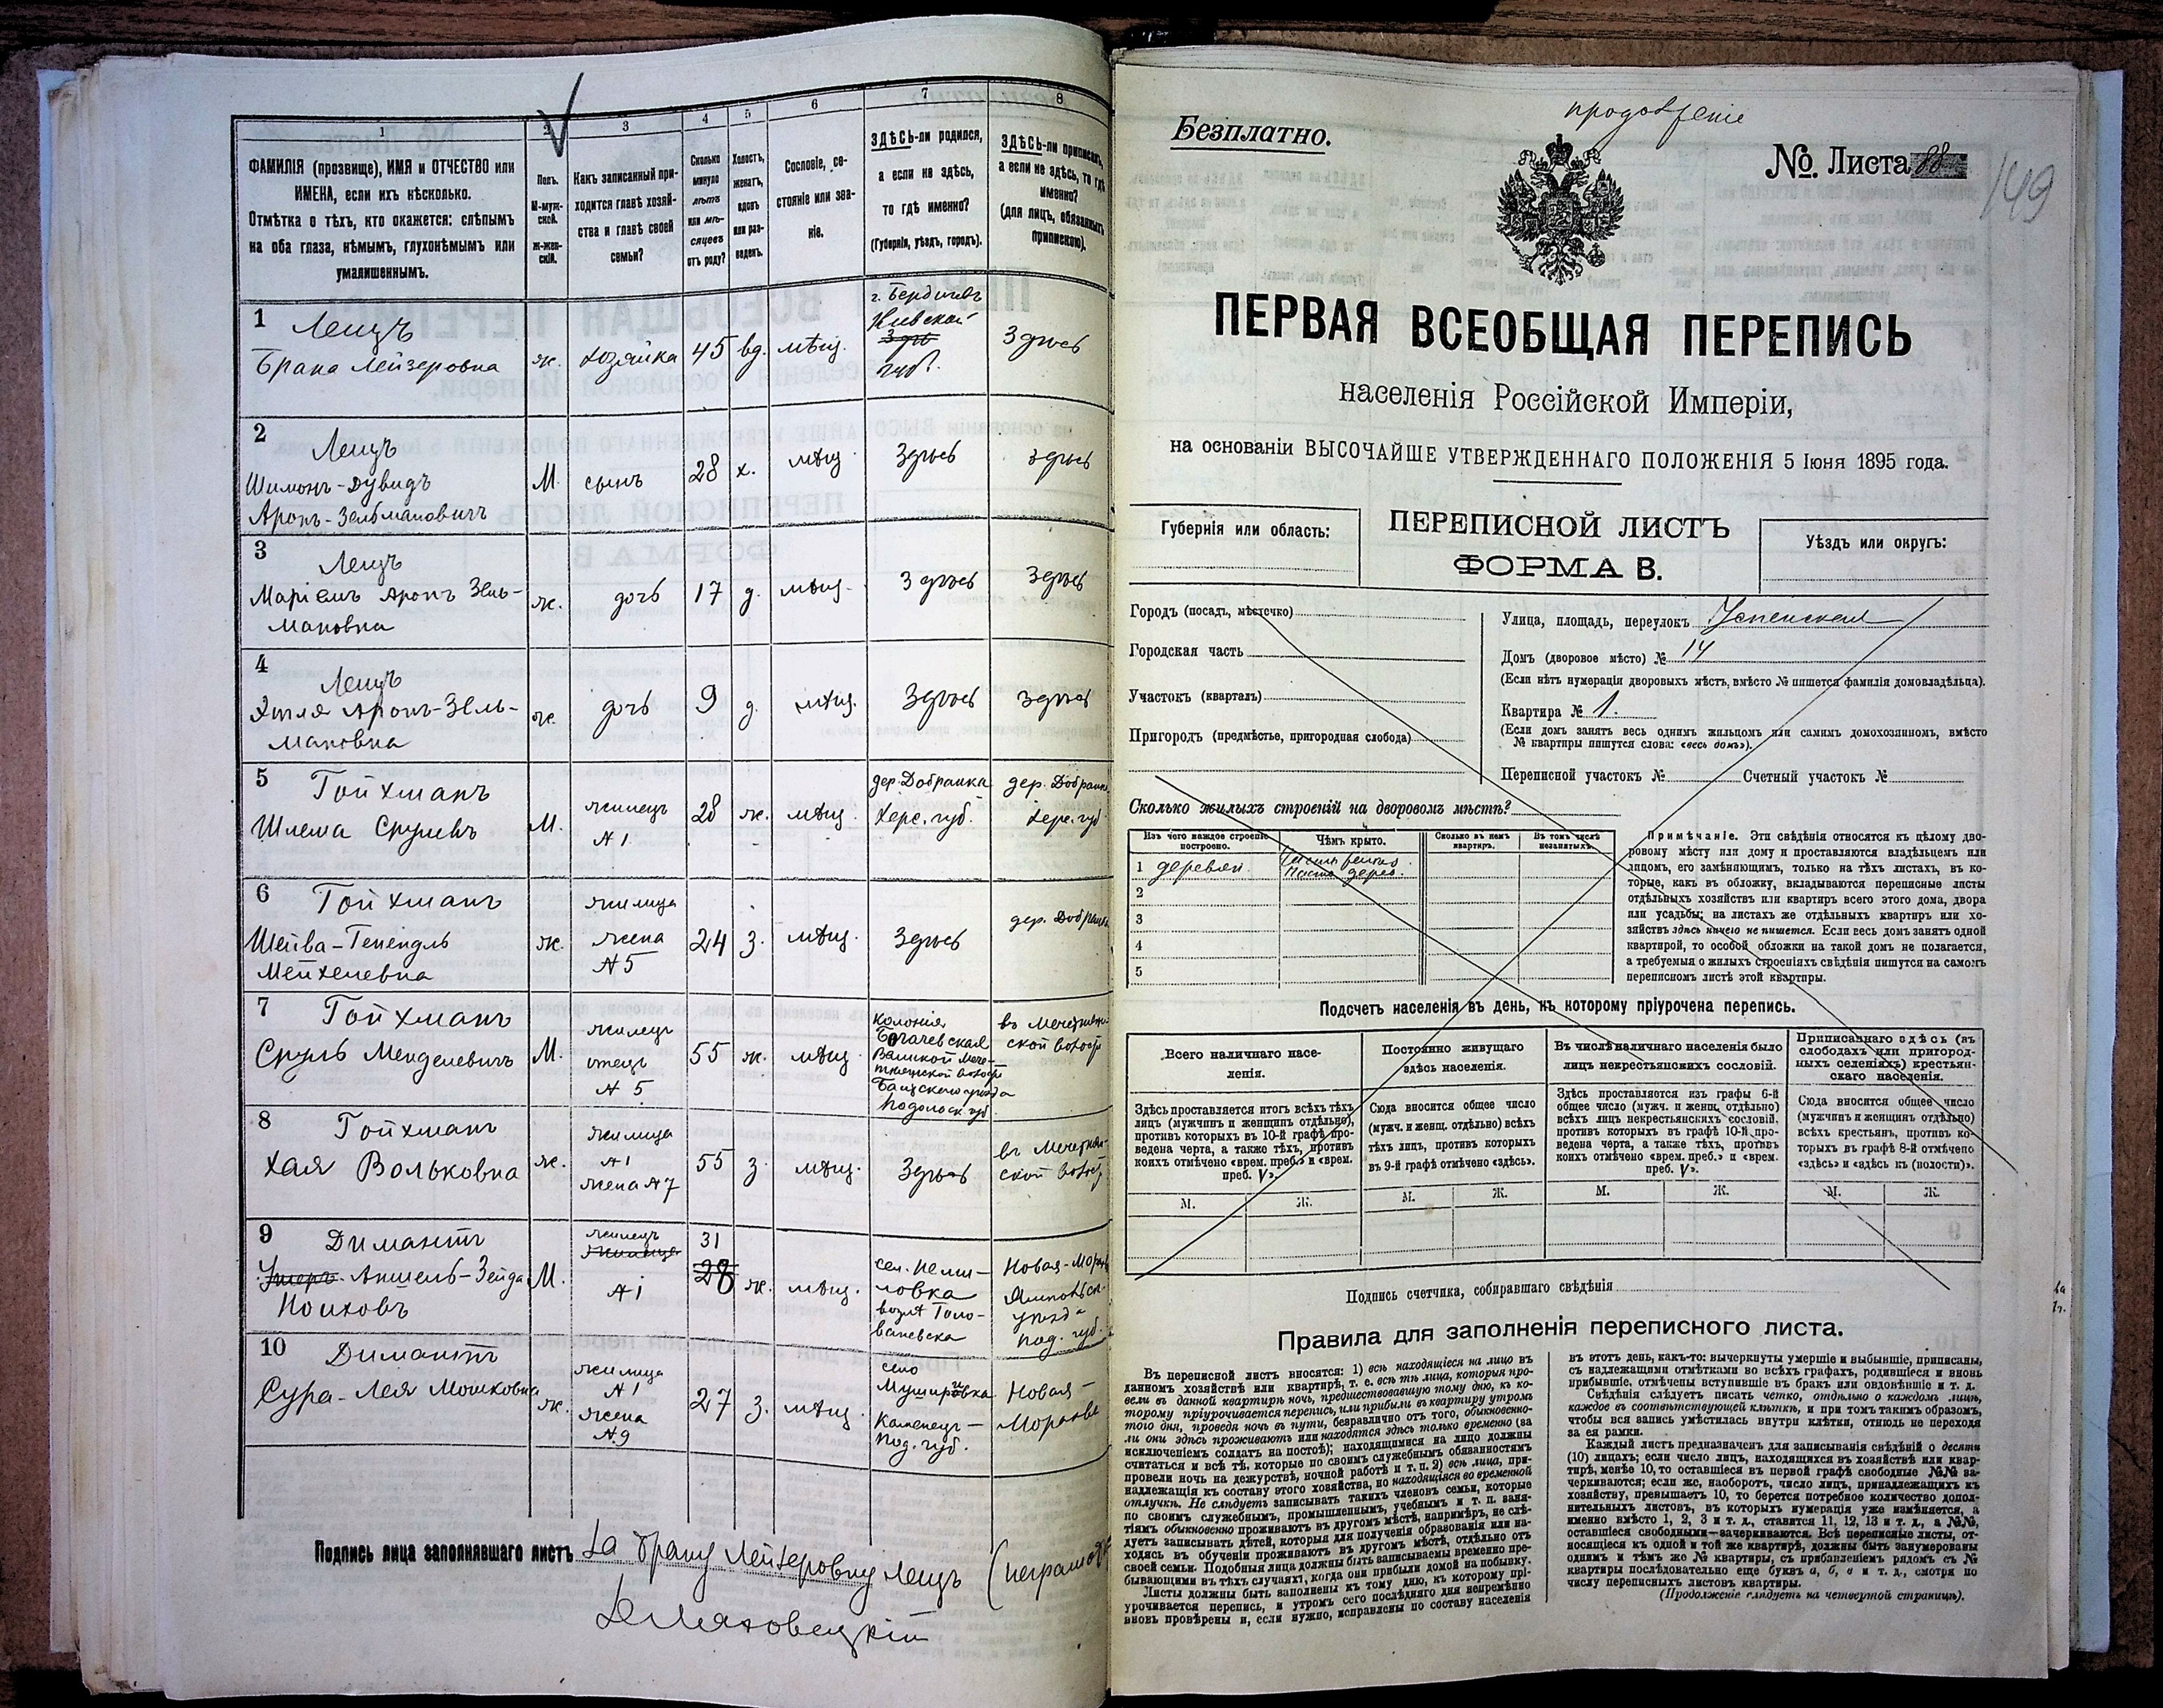 1
2
3
4
5
6
7
8
ФАМИЛІЯ (прозвище), ИМЯ и ОТЧЕСТВО или
ИМЕНА, если ихъ нѣсколько.
Отмѣтка о тѣхъ, кто окажется: слѣпымъ
на оба глаза, нѣмымъ, глухонѣмымъ или
умалишеннымъ.
Полъ.
М-муж-
ской.
Ж-жен-
скій.
Какъ записанный при-
ходится главѣ хозяй-
ства и главѣ своей
семьи?
Сколько
минуло
лѣтъ
или мѣ-
сяцевъ
отъ роду?
Холостъ,
женатъ,
вдовъ
или раз-
веденъ.
Сословіе, со-
стояніе или зва-
ніе.
ЗДѢСЬ-ли родился,
а если не здѣсь,
то гдѣ именно?
(Губернія, уѣздъ, городъ).
ЗДѢСЬ-ли приписанъ,
а если не здѣсь, то гдѣ
именно?
(для лицъ, обязанныхъ
припискою).
1 Лещъ
Брана Лейзеровна
ж. хозяйка 45 вд. мѣщ.
г. Бердичевъ
Кіевской
губ.
Здѣсь
2 Лещъ
Шимонъ-Дувидъ
Аронъ-Зельмановичъ
М. сынъ 28 х. мѣщ. Здѣсь здѣсь
3 Лещъ
Маріемъ Аронъ Зель-
мановна
ж. дочь 17 д. мѣщ. Здѣсь Здѣсь
4 Лещъ
Аронъ-Зель-
мановна
ж. дочь 9 д. мѣщ. Здѣсь здѣсь
5 Тойхманъ
Шлема Срулевъ
М. жилецъ
№1
28 ж. мѣщ.
дер. Добранка
Херс. губ.
дер. Добранка
Херс. губ.
6 Тойхманъ
Шейва-Тенендль
Мейхелевна
ж. жилица
жена
№5
24 З. мѣщ. Здѣсь дер. Добранка
7 Тойхманъ
Сруль Менделевичъ
М. жилецъ
отецъ
№ 5
55 ж. мѣщ.
колонія
Богачевская
Балтскаго уѣзда
Подольск. губ.
8 Тойхманъ
Хая Вольковна
ж. жилица
№1
жена №7
55 з. мѣщ. Здѣсь
9 Димантъ
Аншель-Зейда
М. жилецъ
№1
31
28
ж. мѣщ.
возлѣ Голо-
ваневска
уѣзда
под. губ.
10 Димантъ
Сура-Лея Мошковна
ж. жилица
№1
жена
№9
27 з. мѣщ.
село
Каменец-
Под. губ.
Новая-
Подпись лица заполнявшаго листъ За Брану Лейзеровну Лещъ
продолженіе
Безплатно.
№. Листа 88
149
ПЕРВАЯ ВСЕОБЩАЯ ПЕРЕПИСЬ
населенія Россійской Имперіи,
на основаніи ВЫСОЧАЙШЕ УТВЕРЖДЕННАГО ПОЛОЖЕНІЯ 5 Іюня 1895 года.
Губернія или область:
ПЕРЕПИСНОЙ ЛИСТЪ
ФОРМА В.
Уѣздъ или округъ:
Городъ (посадъ, мѣстечко)
Городская часть
Участокъ (кварталъ)
Пригородъ (предмѣстье, пригородная слобода)
Улица, площадь, переулокъ Успенская
Домъ (дворовое мѣсто) № 14
(Если нѣтъ нумераціи дворовыхъ мѣстъ, вмѣсто № пишется фамилія домовладѣльца).
Квартира № 1.
(Если домъ занятъ весь однимъ жильцомъ или самимъ домохозяиномъ, вмѣсто
№ квартиры пишутся слова: «весь домъ»).
Переписной участокъ № Счетный участокъ №
Сколько жилыхъ строеній на дворовомъ мѣстѣ?
Изъ чего каждое строеніе
построено.
Чѣмъ крыто.
Сколько въ немъ
квартиръ.
Въ томъ числѣ
незанятыхъ.
1 деревян.
2
3
4
5
Примѣчаніе. Эти свѣдѣнія относятся къ цѣлому дво-
ровому мѣсту или дому и проставляются владѣльцемъ или
лицомъ, его замѣняющимъ, только на тѣхъ листахъ, въ ко-
торые, какъ въ обложку, вкладываются переписные листы
отдѣльныхъ хозяйствъ или квартиръ всего этого дома, двора
или усадьбы; на листахъ же отдѣльныхъ квартиръ или хо-
зяйствъ здѣсь ничего не пишется. Если весь домъ занятъ одной
квартирой, то особой обложки на такой домъ не полагается,
а требуемыя о жилыхъ строеніяхъ свѣдѣнія пишутся на самомъ
переписномъ листѣ этой квартиры.
Подсчетъ населенія въ день, къ которому пріурочена перепись.
Всего наличнаго насе-
ленія.
Постоянно живущаго
здѣсь населенія.
Въ числѣ наличнаго населенія было
лицъ некрестьянскихъ сословій.
Приписаннаго здѣсь (въ
слободахъ или пригород-
ныхъ селеніяхъ) крестьян-
скаго населенія.
Здѣсь проставляется итогъ всѣхъ тѣхъ
лицъ (мужчинъ и женщинъ отдѣльно),
противъ которыхъ въ 10-й графѣ про-
ведена черта, а также тѣхъ, противъ
коихъ отмѣчено «врем. преб.» и «врем.
преб. V».
Сюда вносится общее число
(мужч. и женщ. отдѣльно) всѣхъ
тѣхъ лицъ, противъ которыхъ
въ 9-й графѣ отмѣчено «здѣсь».
Здѣсь проставляется изъ графы 6-й
общее число (мужч. и женщ. отдѣльно)
всѣхъ лицъ некрестьянскихъ сословій,
противъ которыхъ въ графѣ 10-й про-
ведена черта, а также тѣхъ, противъ
коихъ отмѣчено «врем. преб.» и «врем.
преб. V».
Сюда вносится общее число
(мужчинъ и женщинъ отдѣльно)
всѣхъ крестьянъ, противъ ко-
торыхъ въ графѣ 8-й отмѣчено
«здѣсь» и «здѣсь къ (волости)».
М. Ж. М. Ж. М. Ж. М. Ж.
Подпись счетчика, собиравшаго свѣдѣнія
Правила для заполненія переписного листа.
Въ переписной листъ вносятся: 1) всѣ находящіеся на лицо въ
данномъ хозяйствѣ или квартирѣ, т. е. всѣ тѣ лица, которыя про-
вели въ данной квартирѣ ночь, предшествовавшую тому дню, къ ко-
торому пріурочивается перепись, или прибыли въ квартиру утромъ
того дня, проведя ночь въ пути, безразлично отъ того, обыкновенно-
ли они здѣсь проживаютъ или находятся здѣсь только временно (за
исключеніемъ солдатъ на постоѣ); находящимися на лицо должны
считаться и всѣ тѣ, которые по своимъ служебнымъ обязанностямъ
провели ночь на дежурствѣ, ночной работѣ и т. п. 2) всѣ лица, при-
надлежащія къ составу этого хозяйства, но находящіяся во временной
отлучкѣ. Не слѣдуетъ записывать такихъ членовъ семьи, которые
по своимъ служебнымъ, промышленнымъ, учебнымъ и т. п. заня-
тіямъ обыкновенно проживаютъ въ другомъ мѣстѣ, напримѣръ, не слѣ-
дуетъ записывать дѣтей, которыя для полученія образованія или на-
ходясь въ обученіи проживаютъ въ другомъ мѣстѣ, отдѣльно отъ
своей семьи. Подобныя лица должны быть записываемы временно пре-
бывающими въ тѣхъ случаяхъ, когда они прибыли домой на побывку.
Листы должны быть заполнены къ тому дню, къ которому прі-
урочивается перепись, и утромъ сего послѣдняго дня непремѣнно
вновь провѣрены и, если нужно, исправлены по составу населенія
въ этотъ день, какъ-то: вычеркнуты умершіе и выбывшіе, приписаны,
съ надлежащими отмѣтками во всѣхъ графахъ, родившіеся и вновь
прибывшіе, отмѣчены вступившіе въ бракъ или овдовѣвшіе и т. д.
Свѣдѣнія слѣдуетъ писать четко, отдѣльно о каждомъ лицѣ,
каждое въ соотвѣтствующей клѣткѣ, и при томъ такимъ образомъ,
чтобы вся запись умѣстилась внутри клѣтки, отнюдь не переходя
за ея рамки.
Каждый листъ предназначенъ для записыванія свѣдѣній о десяти
(10) лицахъ; если число лицъ, находящихся въ хозяйствѣ или квар-
тирѣ, менѣе 10, то оставшіеся въ первой графѣ свободные №№ за-
черкиваются; если же, наоборотъ, число лицъ, принадлежащихъ къ
хозяйству, превышаетъ 10, то берется потребное количество допол-
нительныхъ листовъ, въ которыхъ нумерація уже измѣняется, а
именно вмѣсто 1, 2, 3 и т. д., ставится 11, 12, 13 и т. д., а №№,
оставшіеся свободными—зачеркиваются. Всѣ переписные листы, от-
носящіеся къ одной и той же квартирѣ, должны быть занумерованы
однимъ и тѣмъ же № квартиры, съ прибавленіемъ рядомъ съ №
квартиры послѣдовательно еще буквъ а, б, в и т. д., смотря по
числу переписныхъ листовъ квартиры.
(Продолженіе слѣдуетъ на четвертой страницѣ).